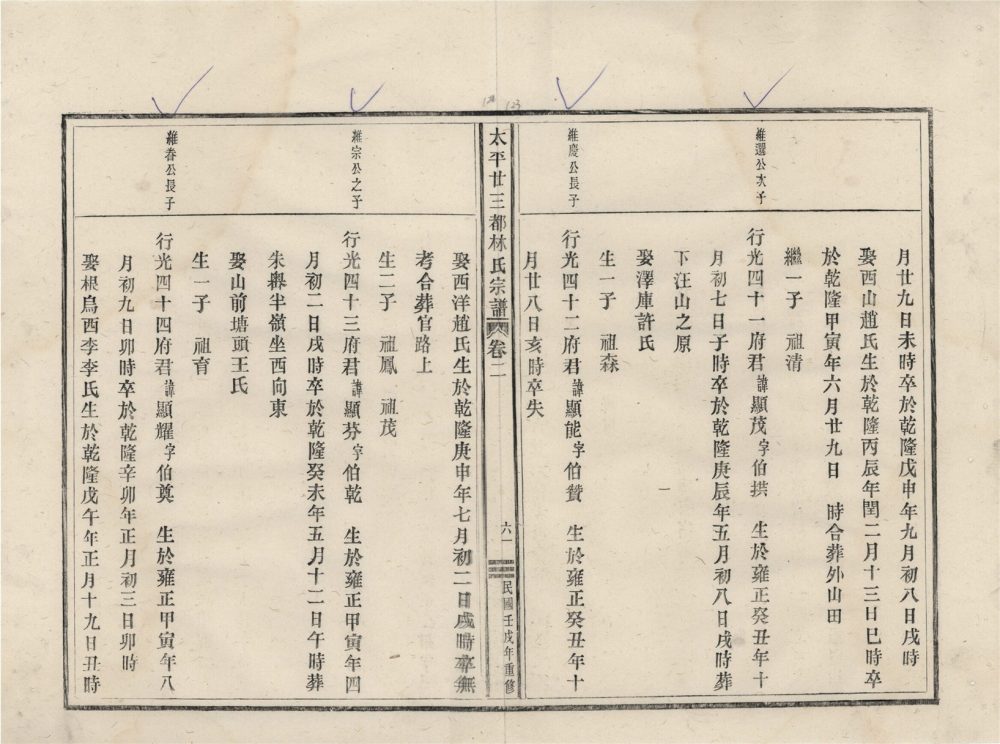 月廿九日未時卒於乾隆戊申年九月初八日戌時
娶西山趙氏生於乾隆丙辰年閏二月十三日巳時卒
於乾隆甲寅年六月廿九日 時合葬外山田
繼一子 祖清
維選公次子
行光四十一府君諱顯茂字伯拱 生於雍正癸丑年十
月初七日子時卒於乾隆庚辰年五月初八日戌時葬
下汪山之原
娶澤庫許氏
生一子 祖森
維慶公長子
行光四十二府君諱顯能字伯贊 生於雍正癸丑年十
月廿八日亥時卒失
太平廿三都林氏宗譜 卷二
六一
民國壬戌年重修
娶西洋趙氏生於乾隆庚申年七月初二日戌時卒無
考合葬官路上
生二子 祖鳳 祖茂
維宗公之子
行光四十三府君諱顯芬字伯乾 生於雍正甲寅年四
月初二日戌時卒於乾隆癸未年五月十二日午時葬
朱嶴半嶺坐西向東
娶山前塘頭王氏
生一子 祖育
維春公長子
行光四十四府君諱顯耀字伯奠 生於雍正甲寅年八
月初九日卯時卒於乾隆辛卯年正月初三日卯時
娶根鳥西李李氏生於乾隆戊午年正月十九日丑時